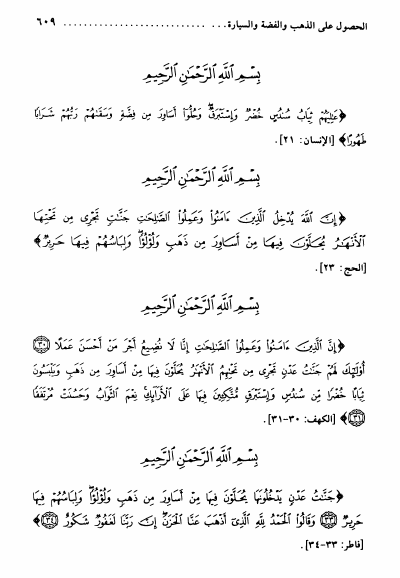 الحصول على الذهب والفضة والسيارة... .......................... ٦٠٩
بِسْمِ ٱللَّهِ ٱلرَّحْمَٰنِ ٱلرَّحِيمِ
﴿عَٰلِيَهُمْ ثِيَابُ سُندُسٍ خُضْرٌ وَإِسْتَبْرَقٌ ۖ وَحُلُّوٓا۟ أَسَاوِرَ مِن فِضَّةٍ وَسَقَىٰهُمْ رَبُّهُمْ شَرَابًا
طَهُورًا﴾ [الإنسان: ٢١].
بِسْمِ ٱللَّهِ ٱلرَّحْمَٰنِ ٱلرَّحِيمِ
﴿إِنَّ ٱللَّهَ يُدْخِلُ ٱلَّذِينَ ءَامَنُوا۟ وَعَمِلُوا۟ ٱلصَّٰلِحَٰتِ جَنَّٰتٍ تَجْرِى مِن تَحْتِهَا
ٱلْأَنْهَٰرُ يُحَلَّوْنَ فِيهَا مِنْ أَسَاوِرَ مِن ذَهَبٍ وَلُؤْلُؤًا ۖ وَلِبَاسُهُمْ فِيهَا حَرِيرٌ﴾
[الحج: ٢٣].
بِسْمِ ٱللَّهِ ٱلرَّحْمَٰنِ ٱلرَّحِيمِ
﴿إِنَّ ٱلَّذِينَ ءَامَنُوا۟ وَعَمِلُوا۟ ٱلصَّٰلِحَٰتِ إِنَّا لَا نُضِيعُ أَجْرَ مَنْ أَحْسَنَ عَمَلًا ۝٣٠
أُو۟لَٰٓئِكَ لَهُمْ جَنَّٰتُ عَدْنٍ تَجْرِى مِن تَحْتِهِمُ ٱلْأَنْهَٰرُ يُحَلَّوْنَ فِيهَا مِنْ أَسَاوِرَ مِن ذَهَبٍ وَيَلْبَسُونَ
ثِيَابًا خُضْرًا مِّن سُندُسٍ وَإِسْتَبْرَقٍ مُّتَّكِـِٔينَ فِيهَا عَلَى ٱلْأَرَآئِكِ ۚ نِعْمَ ٱلثَّوَابُ وَحَسُنَتْ مُرْتَفَقًا
۝٣١﴾ [الكهف: ٣٠-٣١].
بِسْمِ ٱللَّهِ ٱلرَّحْمَٰنِ ٱلرَّحِيمِ
﴿جَنَّٰتُ عَدْنٍ يَدْخُلُونَهَا يُحَلَّوْنَ فِيهَا مِنْ أَسَاوِرَ مِن ذَهَبٍ وَلُؤْلُؤًا ۖ وَلِبَاسُهُمْ فِيهَا
حَرِيرٌ ۝٣٣ وَقَالُوا۟ ٱلْحَمْدُ لِلَّهِ ٱلَّذِىٓ أَذْهَبَ عَنَّا ٱلْحَزَنَ ۖ إِنَّ رَبَّنَا لَغَفُورٌ شَكُورٌ ۝٣٤﴾
[فاطر: ٣٣-٣٤].